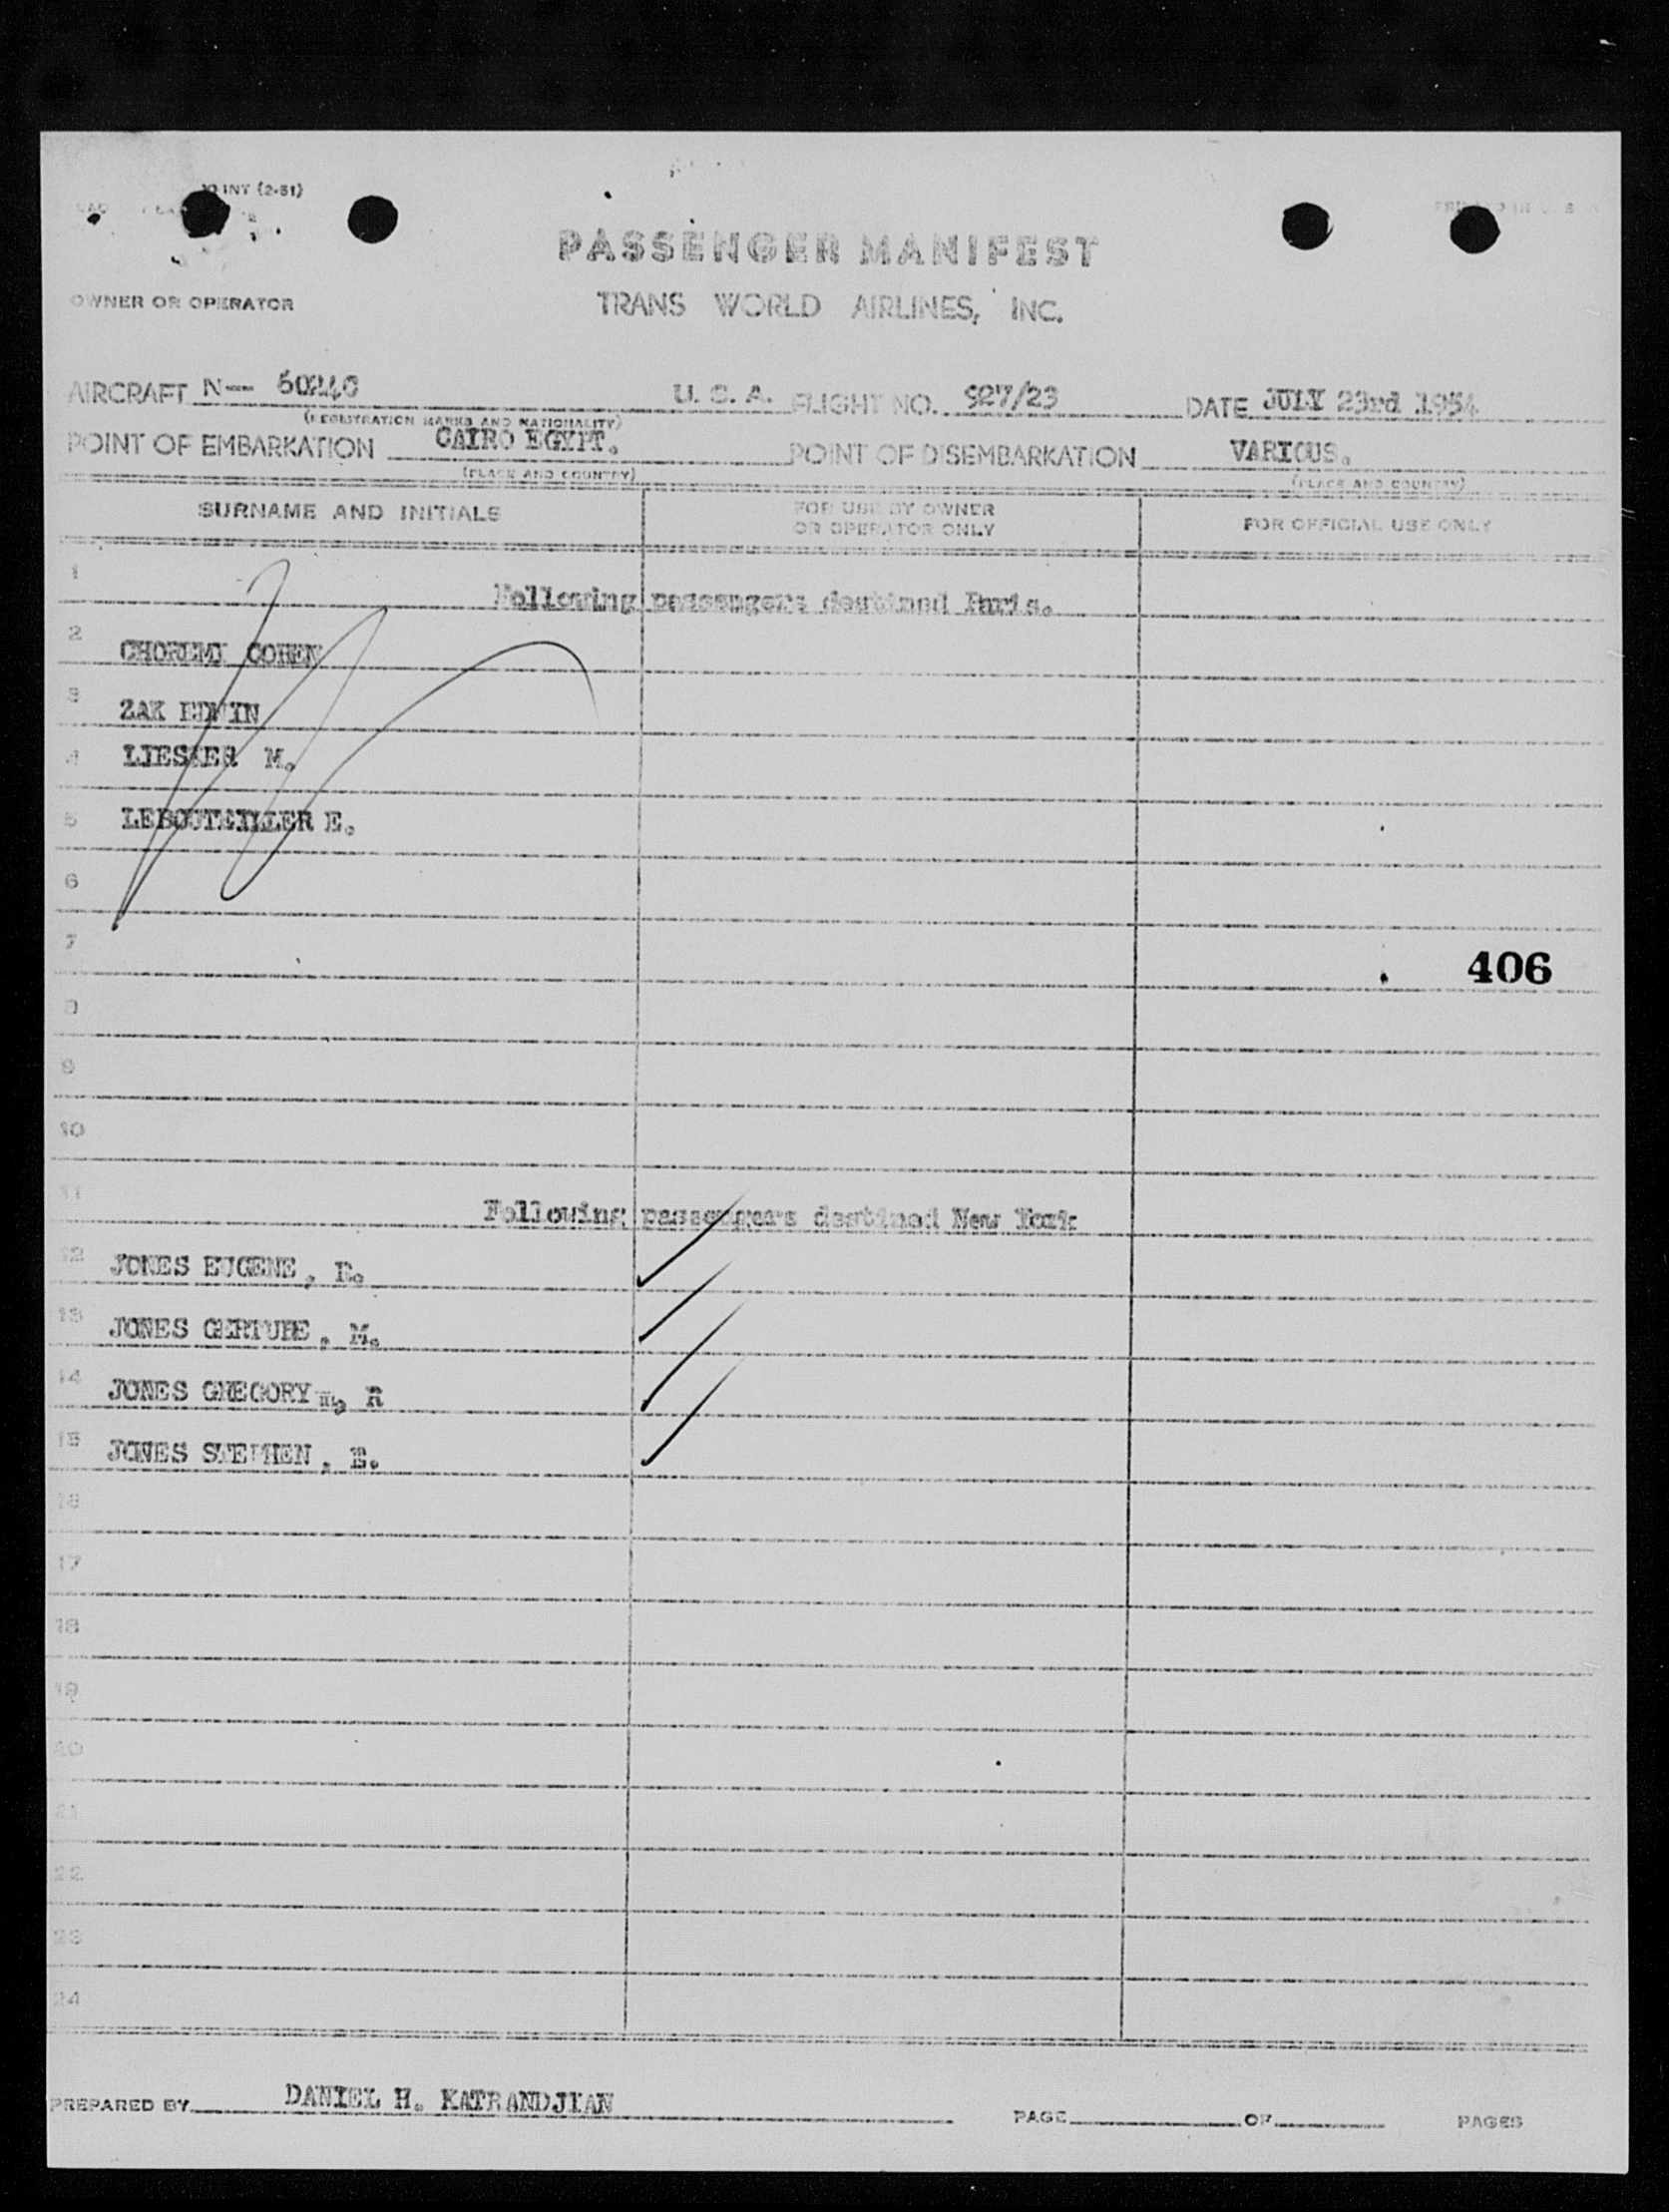 INT (2-51)
PASSENGER MANIFEST
OWNER OR OPERATOR
TRANS WORLD AIRLINES, INC.
AIRCRAFT N— U. S. A. FLIGHT NO. 927/23 DATE JULY 23rd 1954
(REGISTRATION MARKS AND NATIONALITY)
POINT OF EMBARKATION CAIRO EGYPT. POINT OF DISEMBARKATION VARIOUS.
(PLACE AND COUNTRY) (PLACE AND COUNTRY)
SURNAME AND INITIALS FOR USE BY OWNER OR OPERATOR ONLY FOR OFFICIAL USE ONLY
1 Following passengers destined Paris.
2 COHEN
3 ZAK EDWIN
4 M.
5 LEBOUTEILLER E.
6
7 406
8
9
10
11 Following passengers destined New York
12 JONES EUGENE,
13 JONES GERTUDE, M.
14 JONES GREGORY R
15 JONES STEPHEN, E.
16
17
18
19
20
21
22
23
24
PREPARED BY DANIEL H. KATRANDJIAN PAGE OF PAGES